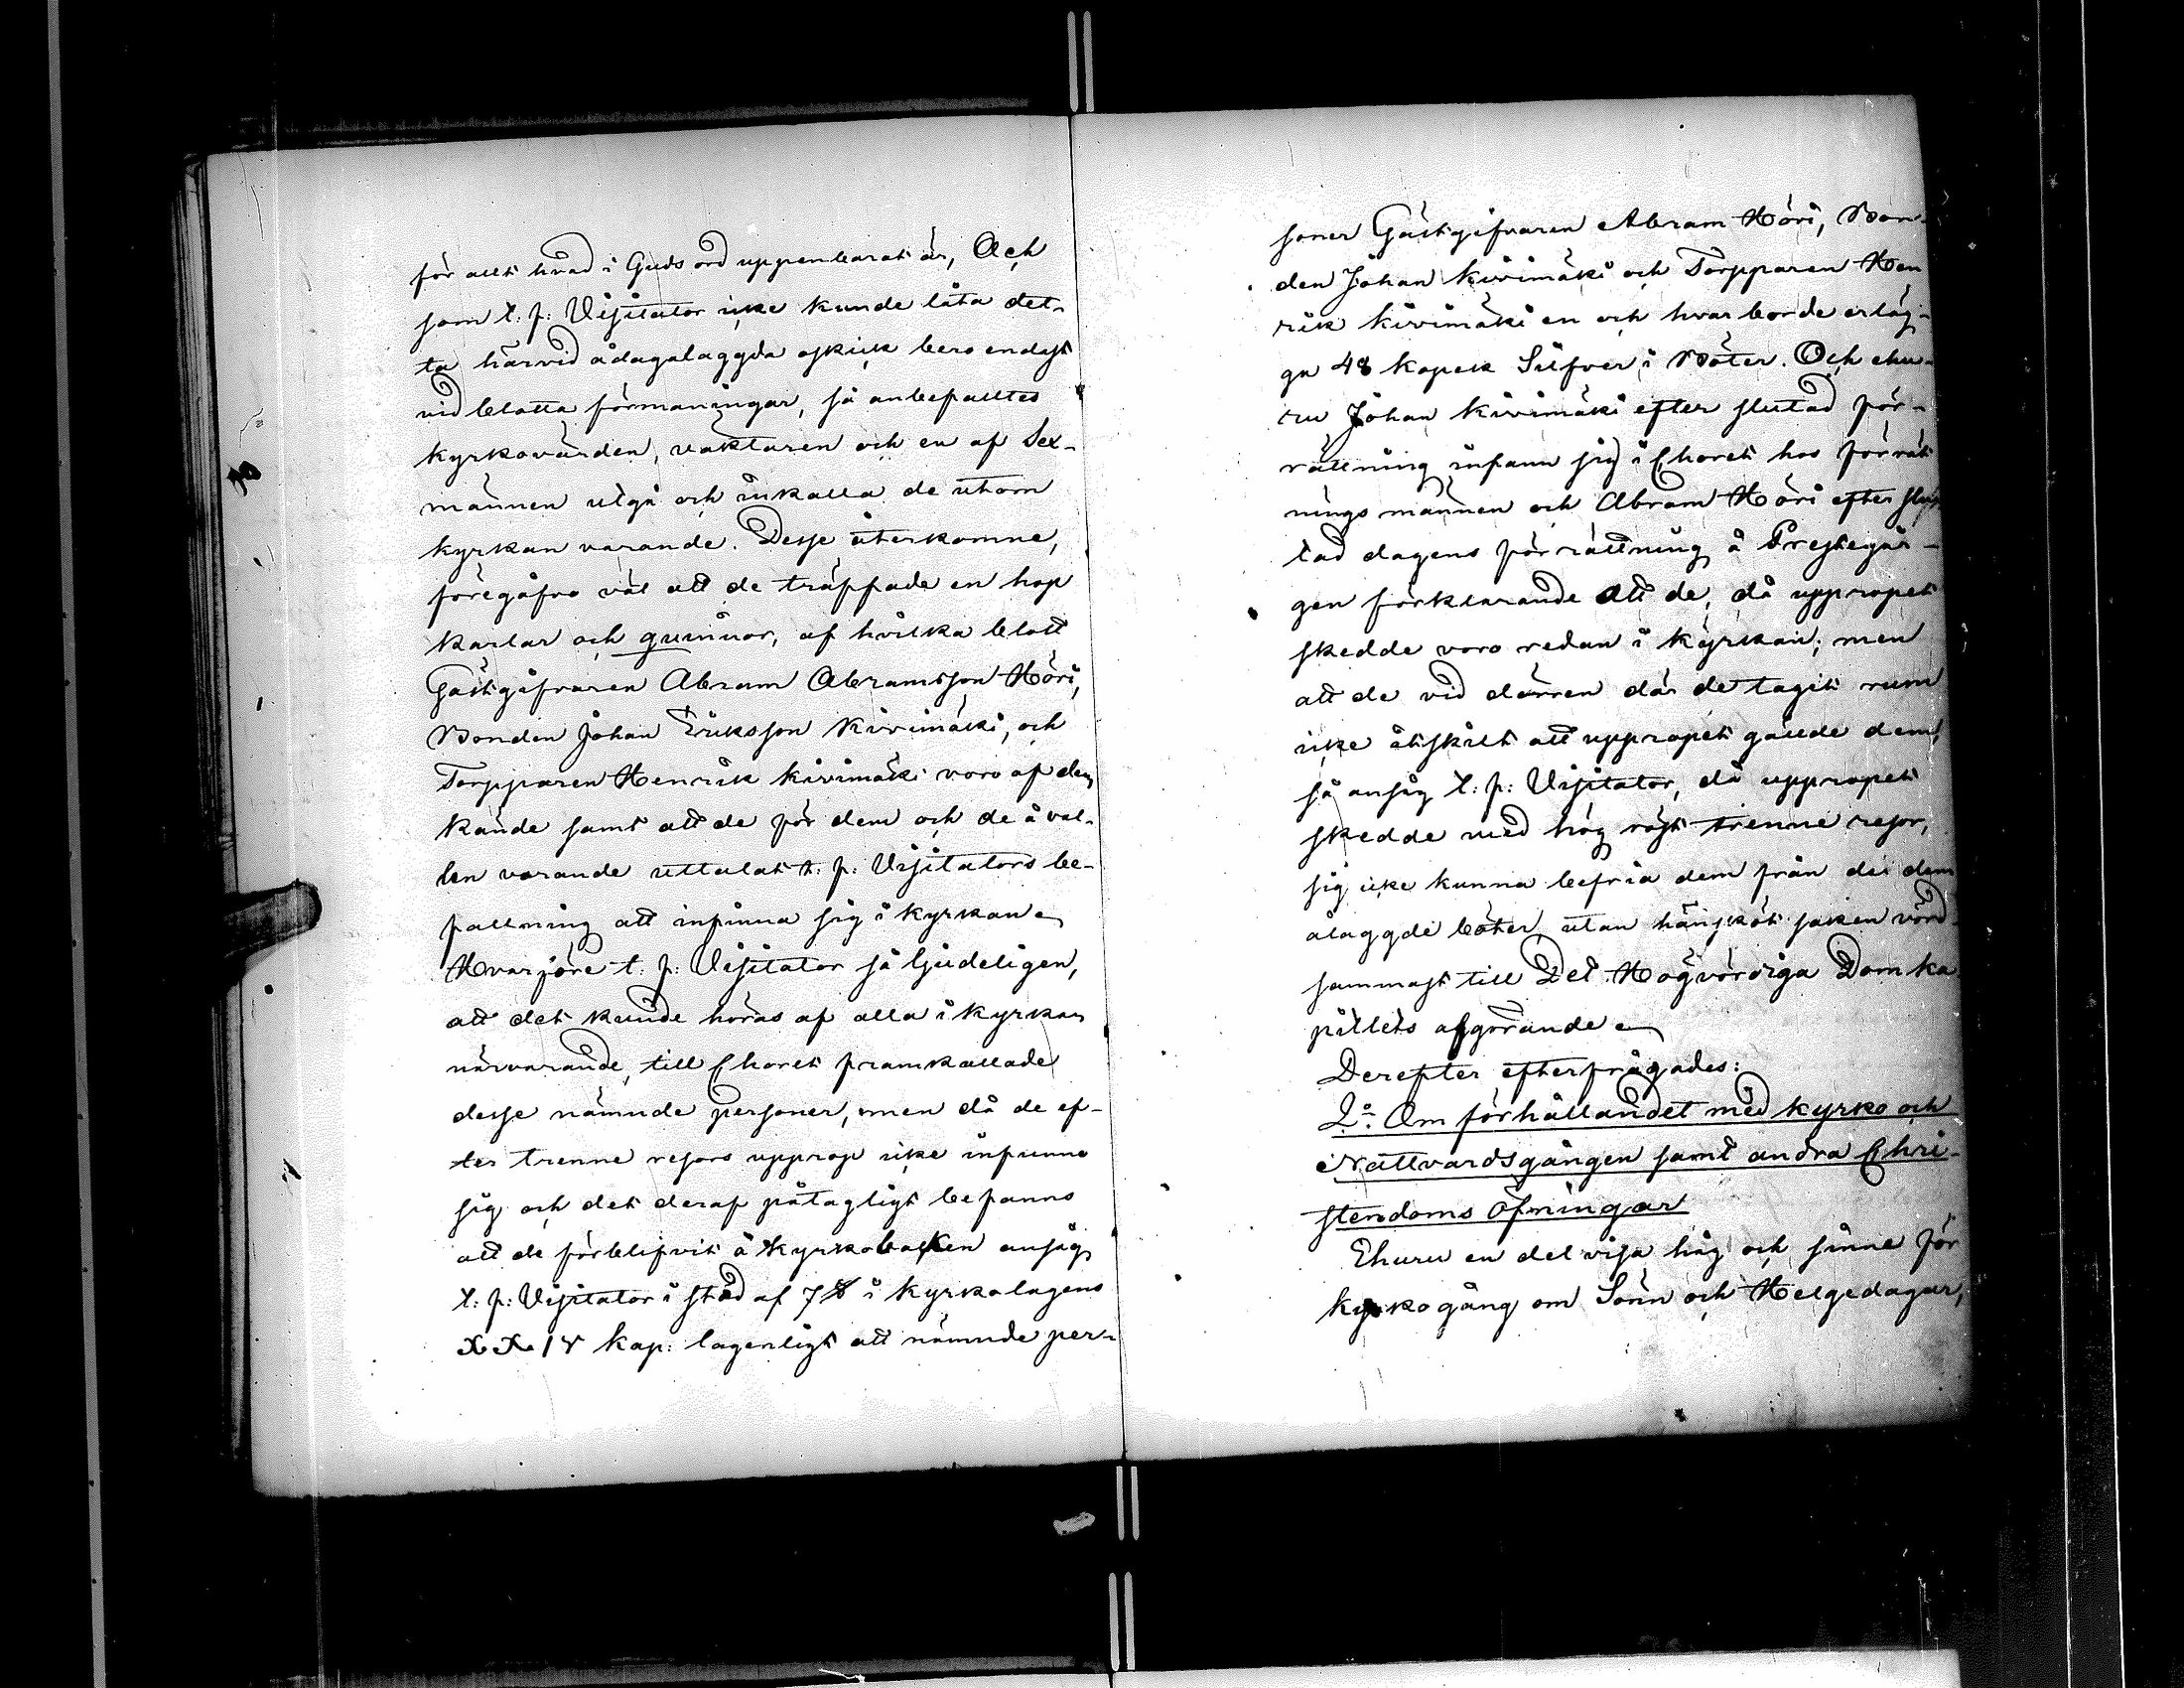 för allt hvad i Guds ord uppenbarat är, Och
som t: f: Visitator icke kunde låta det-
ta härvid ådagalaggda oskick bero endast
vid blotta förmaningar, så anbefalltes
kyrkovärden, väktaren och en af Sex-
männen utgå och inkalla de utom
kyrkan varande. Desse återkomne,
föregåfvo väl att de träffade en hop
karlar och quinnor, af hvilka blott
Gästgifvaren Abram Abramsson Höri,
Bonden Johan Eriksson Kivimäki, och
Torpparen Henrik Kivimäki voro af dem
kände samt att de för dem och de å val-
len varande uttalat t: f: Visitators be-
fallning att infinna sig i kyrkan
Hvarföre t: f: Visitator så ljudeligen,
att det kunde höras af alla i kyrkan
närvarande, till Choret framkallade
desse nämnde personer, men då de ef-
ter trenne resors upprop icke infunno
sig och det deraf påtagligt befanns
att de förblifvit å kyrkobacken ansåg
t: f: Visitator i stöd af 7 § i kyrkolagens
XXIV Kap: lagenligt att nämnde per-
soner Gästgifvaren Abram Höri, Bon-
den Johan Kivimäki och Torpparen Hen
rik Kivimäki en och hvar borde erläg-
ga 48 kopek Silfver i Böter. Och ehu-
ru Johan Kivimäki efter slutad för-
rättning infann sig i Choret hos förrätt
nings männen och Abram Höri efter slu
tad dagens förrättning å Prestegår-
gen förklarande att de, då uppropet
skedde voro redan i kyrkan; men
att de vid dörren där de tagit rum
icke åtskilt att uppropet gällde dem,
så ansåg t: f: Visitator, då uppropet
skedde med hög röst trenne resor,
sig icke kunna befria dem från de dem
ålaggde böter, utan hänsköt saken vörd
sammast till Det Högvördiga Domka
pitlets afgörande
Derefter efterfrågades:
2:o Om förhållandet med kyrko och
Nattvardsgången samt andra Chri-
stendoms öfningar
Ehuru en del visa håg och sinne för
kyrkogång om Sönn och Helgedagar,